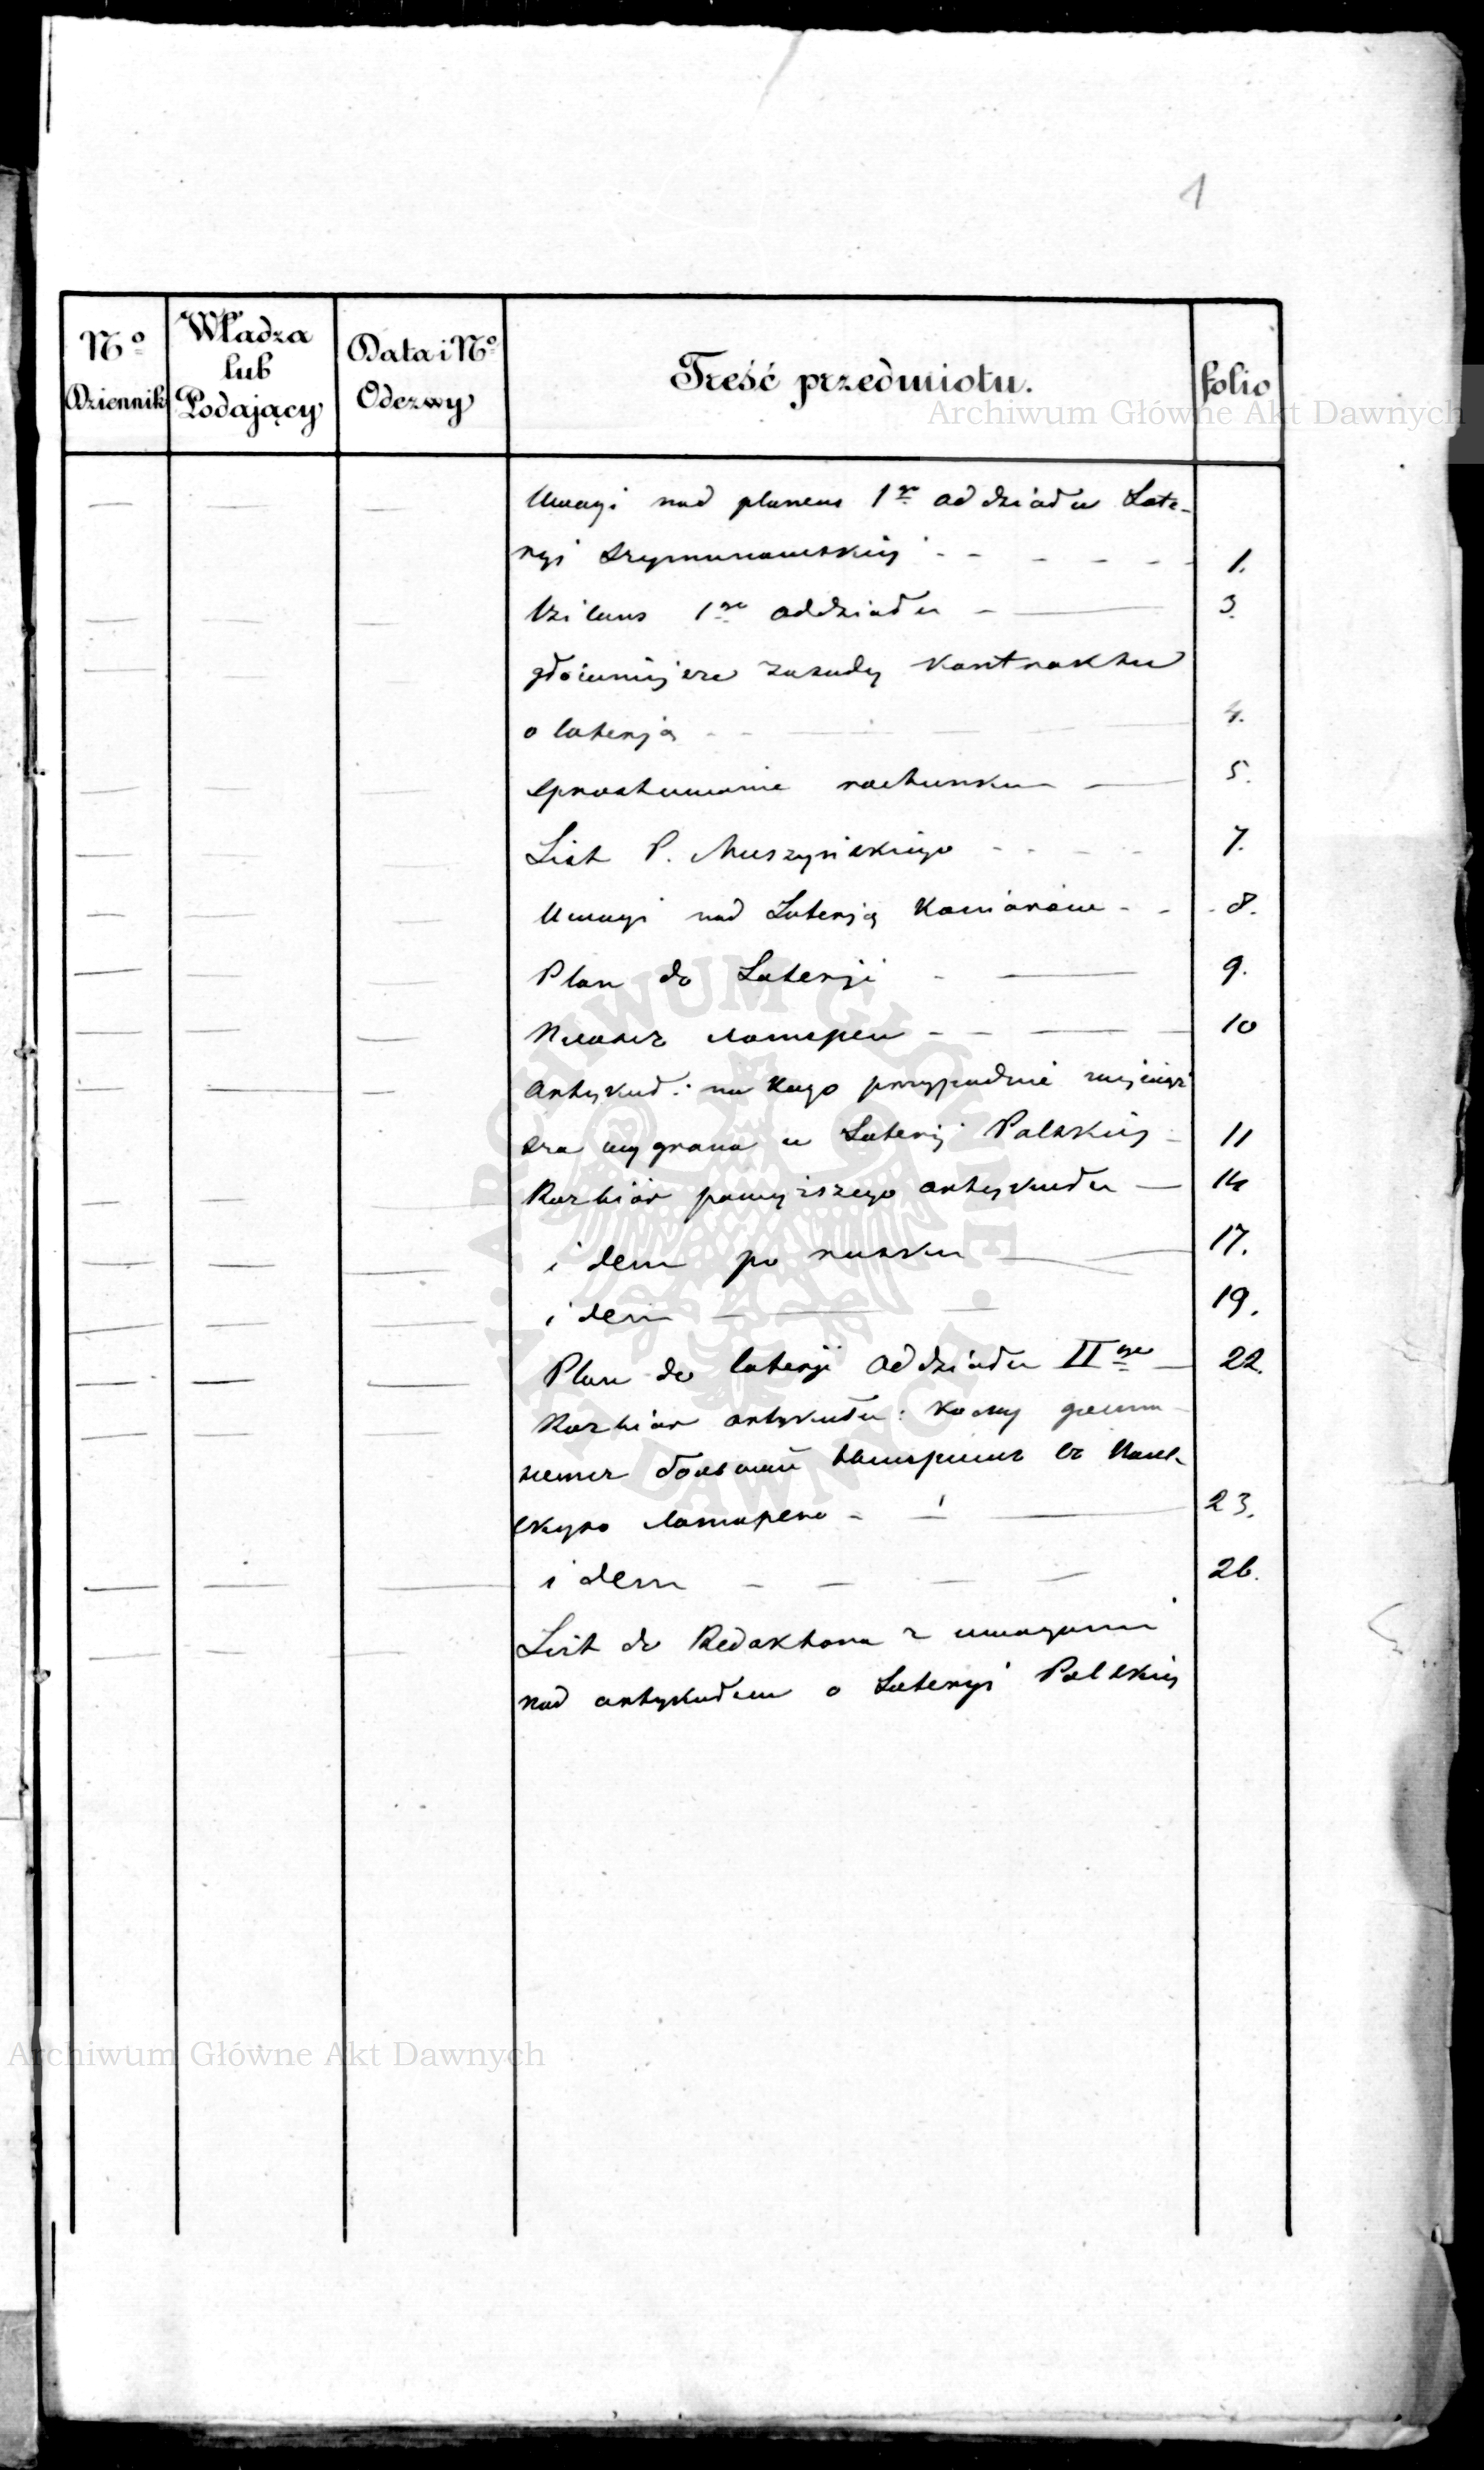 1
No Dziennik
Władza lub Podający
Data i No Odezwy
Treść przedmiotu.
folio
Uwagi nad planem 1go oddziału Lote-
ryi Szymanowskiej 1.
1go oddziału 3.
główniejsze zasady kontraktu
o loterją 4.
sprostowanie rachunku 5.
List P. Muszyńskiego 7.
Uwagi nad Loterją 8.
Plan do Loterji 9.
Планъ лотереи 10
Artykuł: na kogo przypadnie najwięk
sza wygrana w Loterji Polskiej 11
Rozbiór powyższego artykułu 14
idem po rusku 17.
idem 19.
Plan do loterji oddziału IIgo 22.
Rozbiór artykułu: Кому
большой въ
лотерею 23.
idem 26.
List do Redaktora z uwagami
nad artykułem o Loteryi Polskiej
Archiwum Główne Akt Dawnych
Archiwum Główne Akt Dawnych
ARCHIWUM GŁÓWNE AKT DAWNYCH